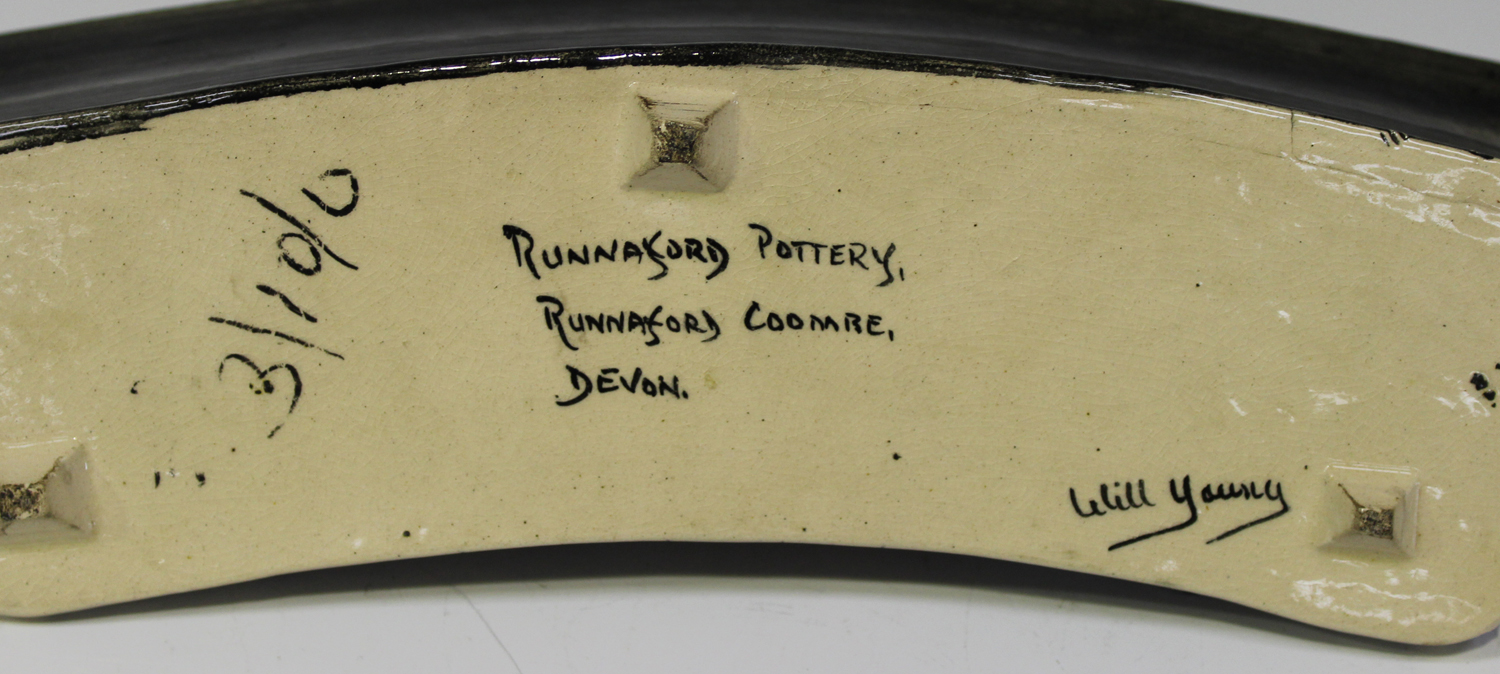 3/10/0
RUNNAFORD POTTERY,
RUNNAFORD COOMBE,
DEVON.
Will Young